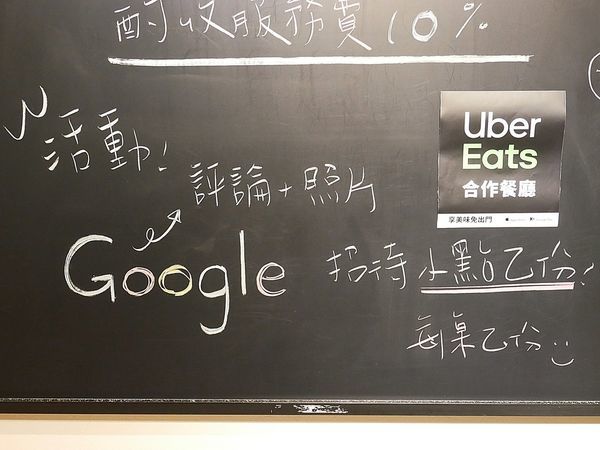 酌收服務費10%
活動!
評論+照片
Google
招待小點乙份!
每桌乙份
Uber
Eats
合作餐廳
享美味免出門